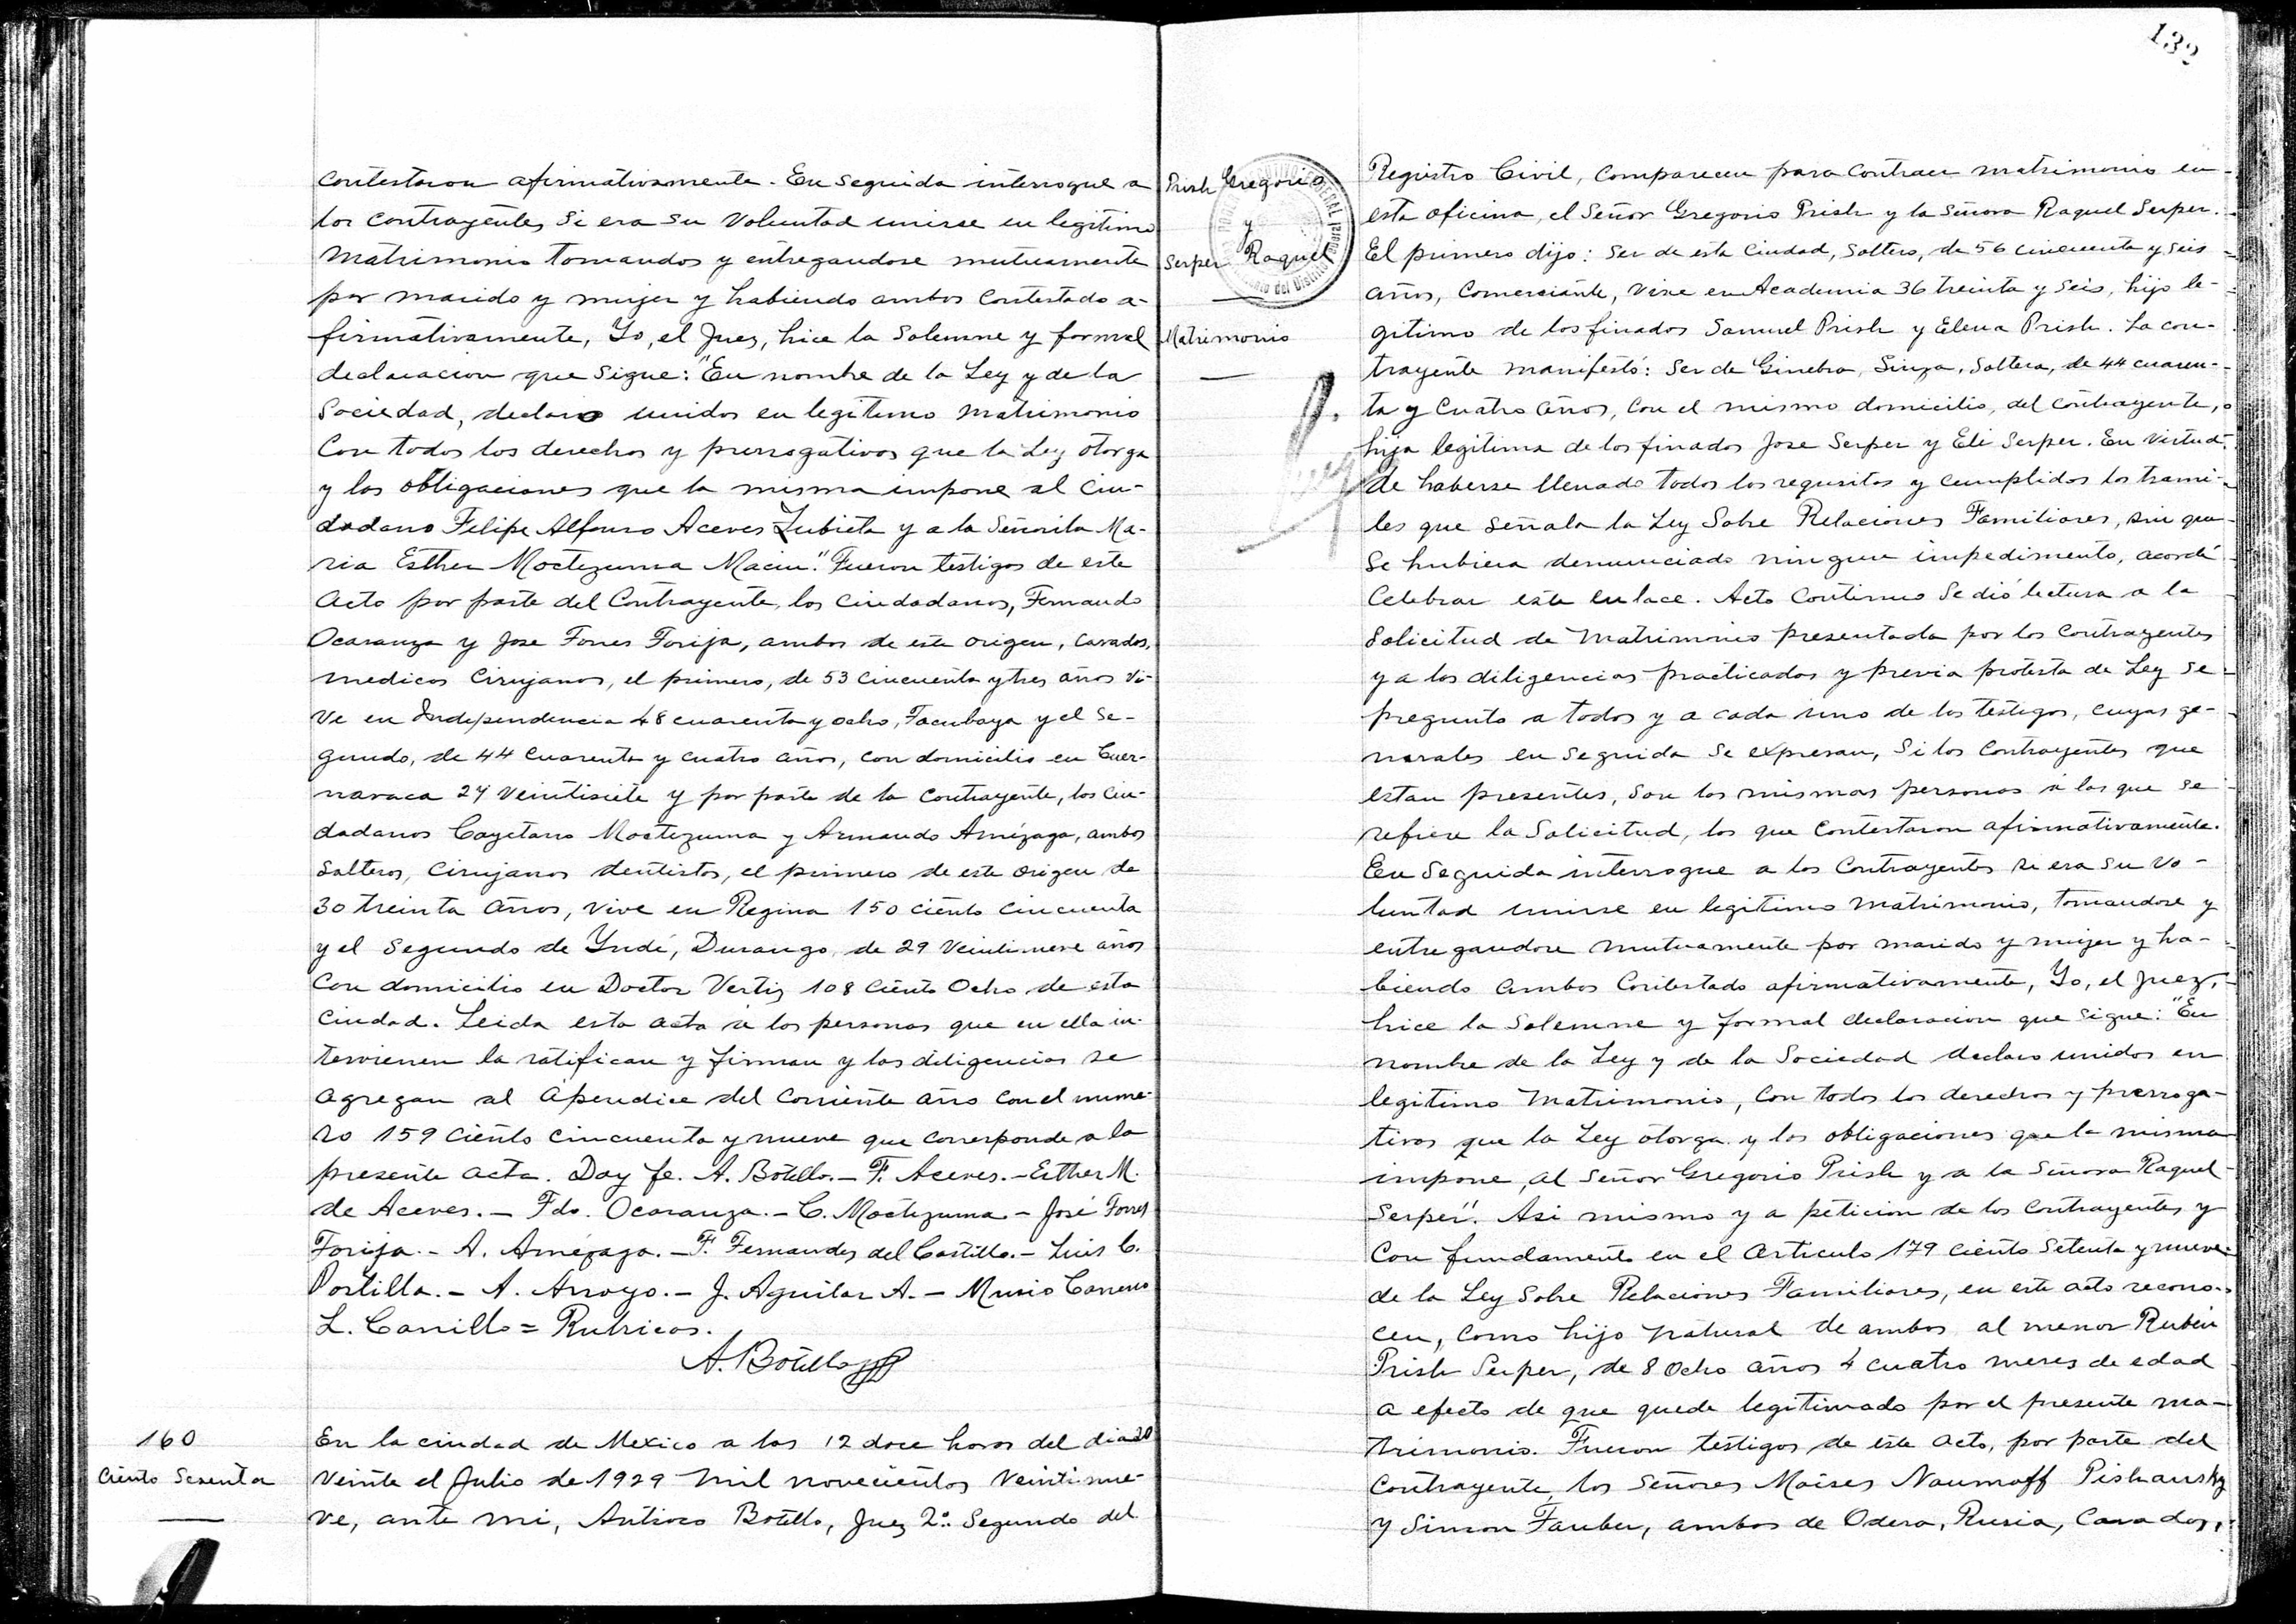 contestaron afirmativamente. En seguida interrogue a
los contrayentes si era su voluntad unirse en legitimo
matrimonio tomandos y entregandose mutuamente
por marido y mujer y habiendo ambos contestado a-
firmativamente, Yo, el Juez, hice la solemne y formal
declaracion que sigue: "En nombre de la Ley y de la
Sociedad, declaro unidos en legitimo matrimonio
con todos los derechos y prerrogativas que la Ley otorga
y las obligaciones que la misma impone al Ciu-
dadano Felipe Alfonso Aceves Zubieta y a la Señorita Ma-
ria Esther Moctezuma Macin". Fueron testigos de este
acto por parte del Contrayente, los ciudadanos, Fernando
Ocaranza y Jose Torres Torija, ambos de este origen, casados,
medicos cirujanos, el primero, de 53 cincuenta y tres años vi-
ve en Independencia 48 cuarenta y ocho, Tacubaya y el se-
gundo, de 44 cuarenta y cuatro años, con domicilio en Cuer-
navaca 27 veintisiete y por parte de la contrayente, los ciu-
dadanos Cayetano Moctezuma y Armando Amézaga, ambos
solteros, cirujanos dentistas, el primero de este origen de
30 treinta años, vive en Regina 150 ciento cincuenta
y el segundo de Yndé, Durango, de 29 veintinueve años
con domicilio en Doctor Vertiz 108 ciento ocho de esta
ciudad. Leida esta acta á las personas que en ella in-
tervienen la ratifican y firman y las diligencias se
agregan al apendice del corriente año con el nume-
ro 159 ciento cincuenta y nueve que corresponde a la
presente acta. Doy fe. A. Botello.- F. Aceves.- Esther M.
de Aceves.- Fdo. Ocaranza.- C. Moctezuma - José Torres
Torija.- A. Amézaga.- F. Fernandez del Castillo.- Luis C.
Portilla.- A. Arroyo.- J. Aguilar A.- Musio
L. Carrillo = Rubricas.
A. Botello
160
Ciento Sesenta
En la ciudad de Mexico a las 12 doce horas del dia 20
veinte el Julio de 1929 mil novecientos veintinue-
ve, ante mi, Antioco Botello, Juez 2º Segundo del
132
Prish Gregorio
y
Serper Raquel
Matrimonio
Registro Civil, comparecen para contraer matrimonio en
esta oficina, el Señor Gregorio Prish y la Señora Raquel Serper.
El primero dijo: ser de esta Ciudad, soltero, de 56 cincuenta y seis
años, comerciante, vive en Academia 36 treinta y seis, hijo le-
gitimo de los finados Samuel Prish y Elena Prish. La con-
trayente manifestó: ser de Ginebra, Suiza, soltera, de 44 cuaren-
ta y cuatro años, con el mismo domicilio, del contrayente,
hija legitima de los finados Jose Serper y Eli Serper. En virtud
de haberse llenado todos los requisitos y cumplidos los trami-
tes que señala la Ley Sobre Relaciones Familiares, sin que
se hubiera denunciado ningun impedimento, acordé
celebrar este enlace. Acto continuo se dió lectura a la
solicitud de matrimonio presentada por los contrayentes
y a las diligencias practicadas y previa protesta de Ley se
pregunto a todos y a cada uno de los testigos, cuyas ge-
narales en seguida se expresan, si los contrayentes que
estan presentes, son las mismas personas á las que se
refiere la solicitud, los que contestaron afirmativamente.
En seguida interrogue a los contrayentes si era su vo-
luntad unirse en legitimo matrimonio, tomandose y
entregandose mutuamente por marido y mujer y ha-
biendo ambos contestado afirmativamente, Yo, el Juez,
hice la solemne y formal declaracion que sigue: "En
nombre de la Ley y de la Sociedad declaro unidos en
legitimo matrimonio, con todos los derechos y prerroga-
tivas que la Ley otorga y las obligaciones que la misma
impone, al señor Gregorio Prish y a la Señora Raquel
Serper". Asi mismo y a peticion de los contrayentes y
con fundamento en el articulo 179 ciento setenta y nueve
de la Ley Sobre Relaciones Familiares, en este acto recono-
cen, como hijo natural de ambos al menor Rubén
Prish Serper, de 8 ocho años 4 cuatro meses de edad
a efecto de que quede legitimado por el presente ma-
trimonio. Fueron testigos de este acto, por parte del
contrayente, los Señores Moises Naumoff Pishansky
y Simon Fauber, ambos de Odesa, Rusia, casados,